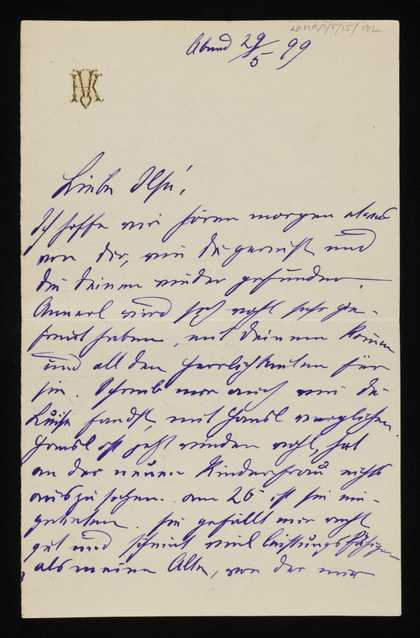 Abend 29/5 99
Liebe Ilse!
Ich hoffe wir hören morgen abend
von dir, wie du gereist und
die deinen wieder gefunden.
Annerl wird sich wohl sehr ge-
freut haben, mit deinem Kommen
und all den Herrlichkeiten für
sie. Schreib mir auch wie du
Luise fandst, mit Hansl verglichen.
Hansl ist jetzt wieder wohl, hat
an der neuen Kinderfrau nichts
auszusetzen. am 26 ist sie ein-
getreten. sie gefällt mir recht
gut und scheint viel leistungsfähiger
als meine Alte, von der mir